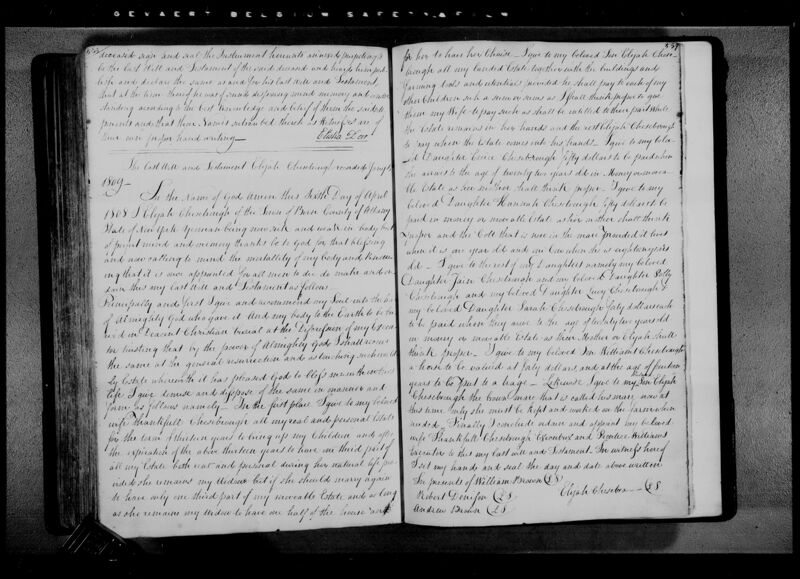 GEVAERT BELGIUM SAFETY FILM
deceased sign and seal the Instrument hereunto annexed purporting to
be the last Will and Testament of the said deceased and heard him pub
lish and declare the same as and for his last Will and Testament
that at the time thereof he was of sound disposing mind memory and under
standing according to the best knowledge and belief of them the said de
ponents and that their Names subscribed thereto as Witnesses are of
their own proper hand writing
Elisha Dorr
The last Will and Testament Elijah Chesebrough recorded Jany
1809
In the Name of God Amen this Sixth Day of April
1808 I Elijah Chesebrough of the Town of Bern County of Albany
State of New York yeoman being very sick and weak in body but
of perfect mind and memory thanks be to God for that blessing
and now calling to mind the mortality of my body and knowing
that it is once appointed for all men to die do make and or
dain this my last Will and Testament as follows
Principally and first I give and recommend my Soul into the hand
of Almighty God who gave it And my body to the Earth to be bu
ried in Decent Christian burial at the Discretion of my Execu
tor trusting that by the power of Almighty God I shall receive
the same at the general resurrection and as touching such world
ly Estate wherewith it has pleased God to bless me in this
life I give demise and dispose of the same in manner and
form as follows namely In the first place I give to my beloved
wife Thankfull Chesebrough all my real and personal Estate
for the term of thirteen years to bring up my Children and after
the expiration of the above thirteen years to have one third part of
all my Estate both real and personal during her natural life pro
vided she remains my Widow but if she should marry again
to have only one third part of my moveable Estate and as long
as she remains my Widow to have one half of the house and
for her to have her Choice I give to my beloved Son Elijah Chese
brough all my landed Estate together with the buildings and
farming tools and utensials provided he shall pay to each of my
other Children such a sum or sums as I shall think proper to give
them my Wife to pay such as shall be intitled to their part while
the Estate remains in her hands and the rest Elijah Chesebrough
to pay when the Estate comes into his hands I give to my belo
ved Daughter Eunice Chesebrough fifty dollars to be paid when
she arives to the age of twenty two years old in Money or movea
ble Estate as her Mother shall think proper I give to my
beloved Daughter Hannah Chesebrough fifty dollars to be
paid in money or movable Estate as her mother shall think
proper and the Colt that is now in the mare provided it lives
when it is one year old and one Cow when she is eighteen years
old I give to the rest of my Daughters namely my beloved
Daughter Jain Chesebrough and my beloved Daughter Polly
Chesebrough and my beloved Daughter Lucy Chesebrough &
my beloved Daughter Sarah Chesebrough forty dollars each
to be paid when they arive to the age of twenty two years old
in money or moveable Estate as their Mother or Elijah shall
think proper I give to my beloved Son William Chesebrough
a horse to be valued at forty dollars and at the age of fourteen
years to be put to a trade Likewise I give to my Son Elijah
Chesebrough the brown mare that is called his mare now at
this time only she must be kept and worked on the farm when
needed Finally I conclude ordane and appoint my beloved
wife Thankfull Chesebrough Executrix and Prentice Williams
Executor to this my last will and Testament In witness hereof
I set my hands and seal the day and date above written
In presents of William Brown LS
Elijah Chesebro LS
Robert Denison LS
Andrew Brown LS